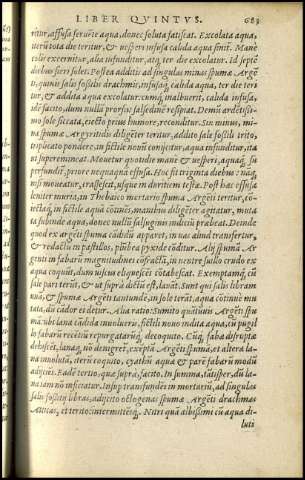 LIBER QVINTVS. 683
ritur, affusa feruēte aqua, donec soluta fatiscat. Excolata aqua,
uerū tota die teritur, & uesperi infusa calida aqua sinit̃. Mane
colic excernitur, alia infunditur, atq́ ter die excolatur. Id septē
diebus fieri solet. Postea additis ad singulas minas spumæ Argē
ti, quinis salis fossilis drachmis, infusaq́ calida aqua, ter die teri
tur, & addita aqua excolatur: cumq́ albuerit, calida infusa,
de facto, dum nullū prorsus salsedinis respirat. Demū ardētissi-
mo sole siccata, eiecto prius humore, reconditur. Siue minus, mi-
na spumæ Argyritidis diligēter teritur, addito sale fossili trito,
duplicato pondere, in fictile nouū conijcitur, aqua infunditur, ita
ut superemineat. Mouetur quotidie mane & uesperi, aquaq́ su
perfundit̃, priore nequaquā effusa. Hoc fit triginta diebus: nāq́
nisi moueatur, crassescet, usque in duritiem testæ. Post hæc effusa
leniter muria, in Thebaico mortario spumæ Argēti teritur, co-
iectaq́ in fictile aqua cōtinēs, manibus diligēter agitatur, muta
ta subinde aqua, donec nullū salsuginis indiciū præbeat. Deinde
quod ex argēti spuma cādidū apparet, in uas aliud transfertur,
& redactū in pastillos, plūbea pyxide cōditur. Alij spumā Ar
genti in fabarū magnitudines cōfractā, in uentre suillo crudo ex
aqua coquūt, dum uiscus eliquescēs cōtabescat. Exemptamq́ cū
sale pari terūt, & ut suprà dictū est, lauāt. Sunt qui salis libram
unā, & spumæ Argēti tantunde, in sole terāt, aqua cōtinuè mu
tata, dū cador ei detur. Alia ratio: Sumito quātūuis Argēti spu
mā: ubi lana cādida inuolueris, fictili nouo indita aqua, cū pugil
lo fabarū recētiū repurgatarūq́, decoquito. Cūq́ faba disrupta
dehiscēt, lanaq́ nō denigret̃, exēptā Argēti spumā, et altera la-
na inuolutā, iterū coquito, cyathū aquæ & parē fabarū modū
adijciēs. Eadē tertio, quæ suprà, facito. In summa, tātisper, dū la-
na iam nō inficatur. Insup transfundēs in mortariū, ad singulas
salis fossilis libras, adijcito octogenas spumæ Argēti drachmas
Atticas, et terito, intermittēsq́. Nitri quā albissimi cū aqua di-
luti